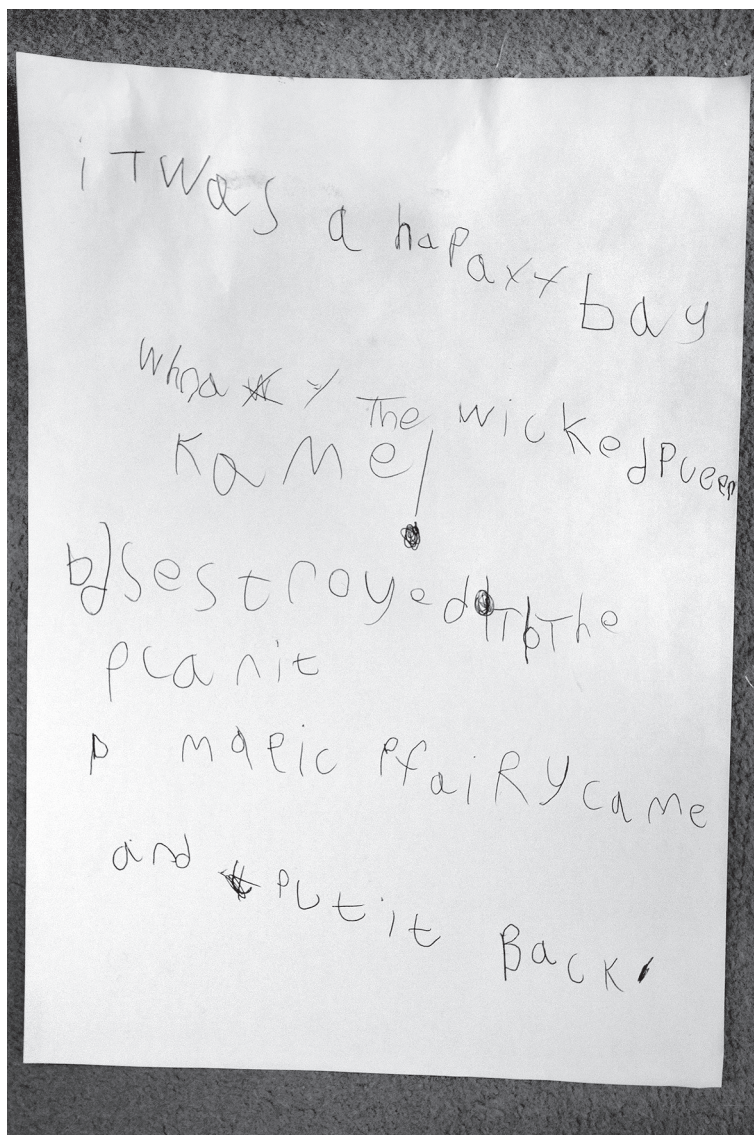 iT was a hapaxy bay
when the wicked pueen
Kame!
destroyed the
planit
magic fairy came
and put it Back.